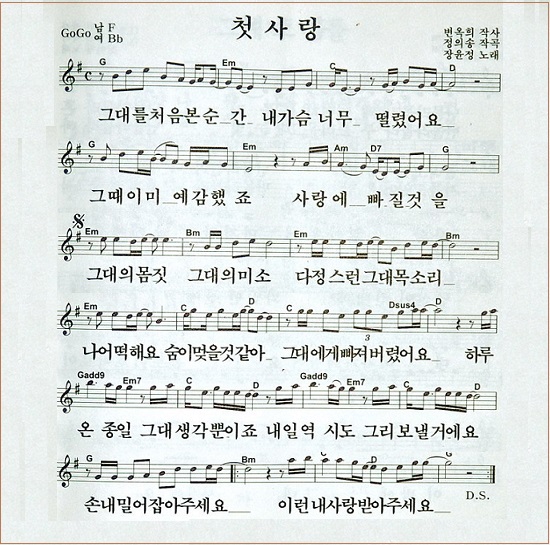 첫 사 랑
GoGo 남 F
여 Bb
변옥희 작사
정의송 작곡
장윤정 노래
G Em C D
그대를처음본순_간_ 내가슴 너무_ 떨렸어요_
G Em Am D7 G
그때이미_예감했 죠 사랑에_빠질것 을
Em Bm Em Bm
그대의몸짓 그대의미소 다정스런그대목소리_
Em C D C Dsus4 D
3
나어떡해요 숨이멎을것같아_ 그대에게빠져버렸어요_ 하루
Gadd9 Em7 C D Gadd9 Em7 C D
온 종일 그대생각뿐이죠 내일역 시도 그리보낼거예요
Em Bm C G
손내밀어잡아주세요_ 이런내사랑받아주세요_
D.S.